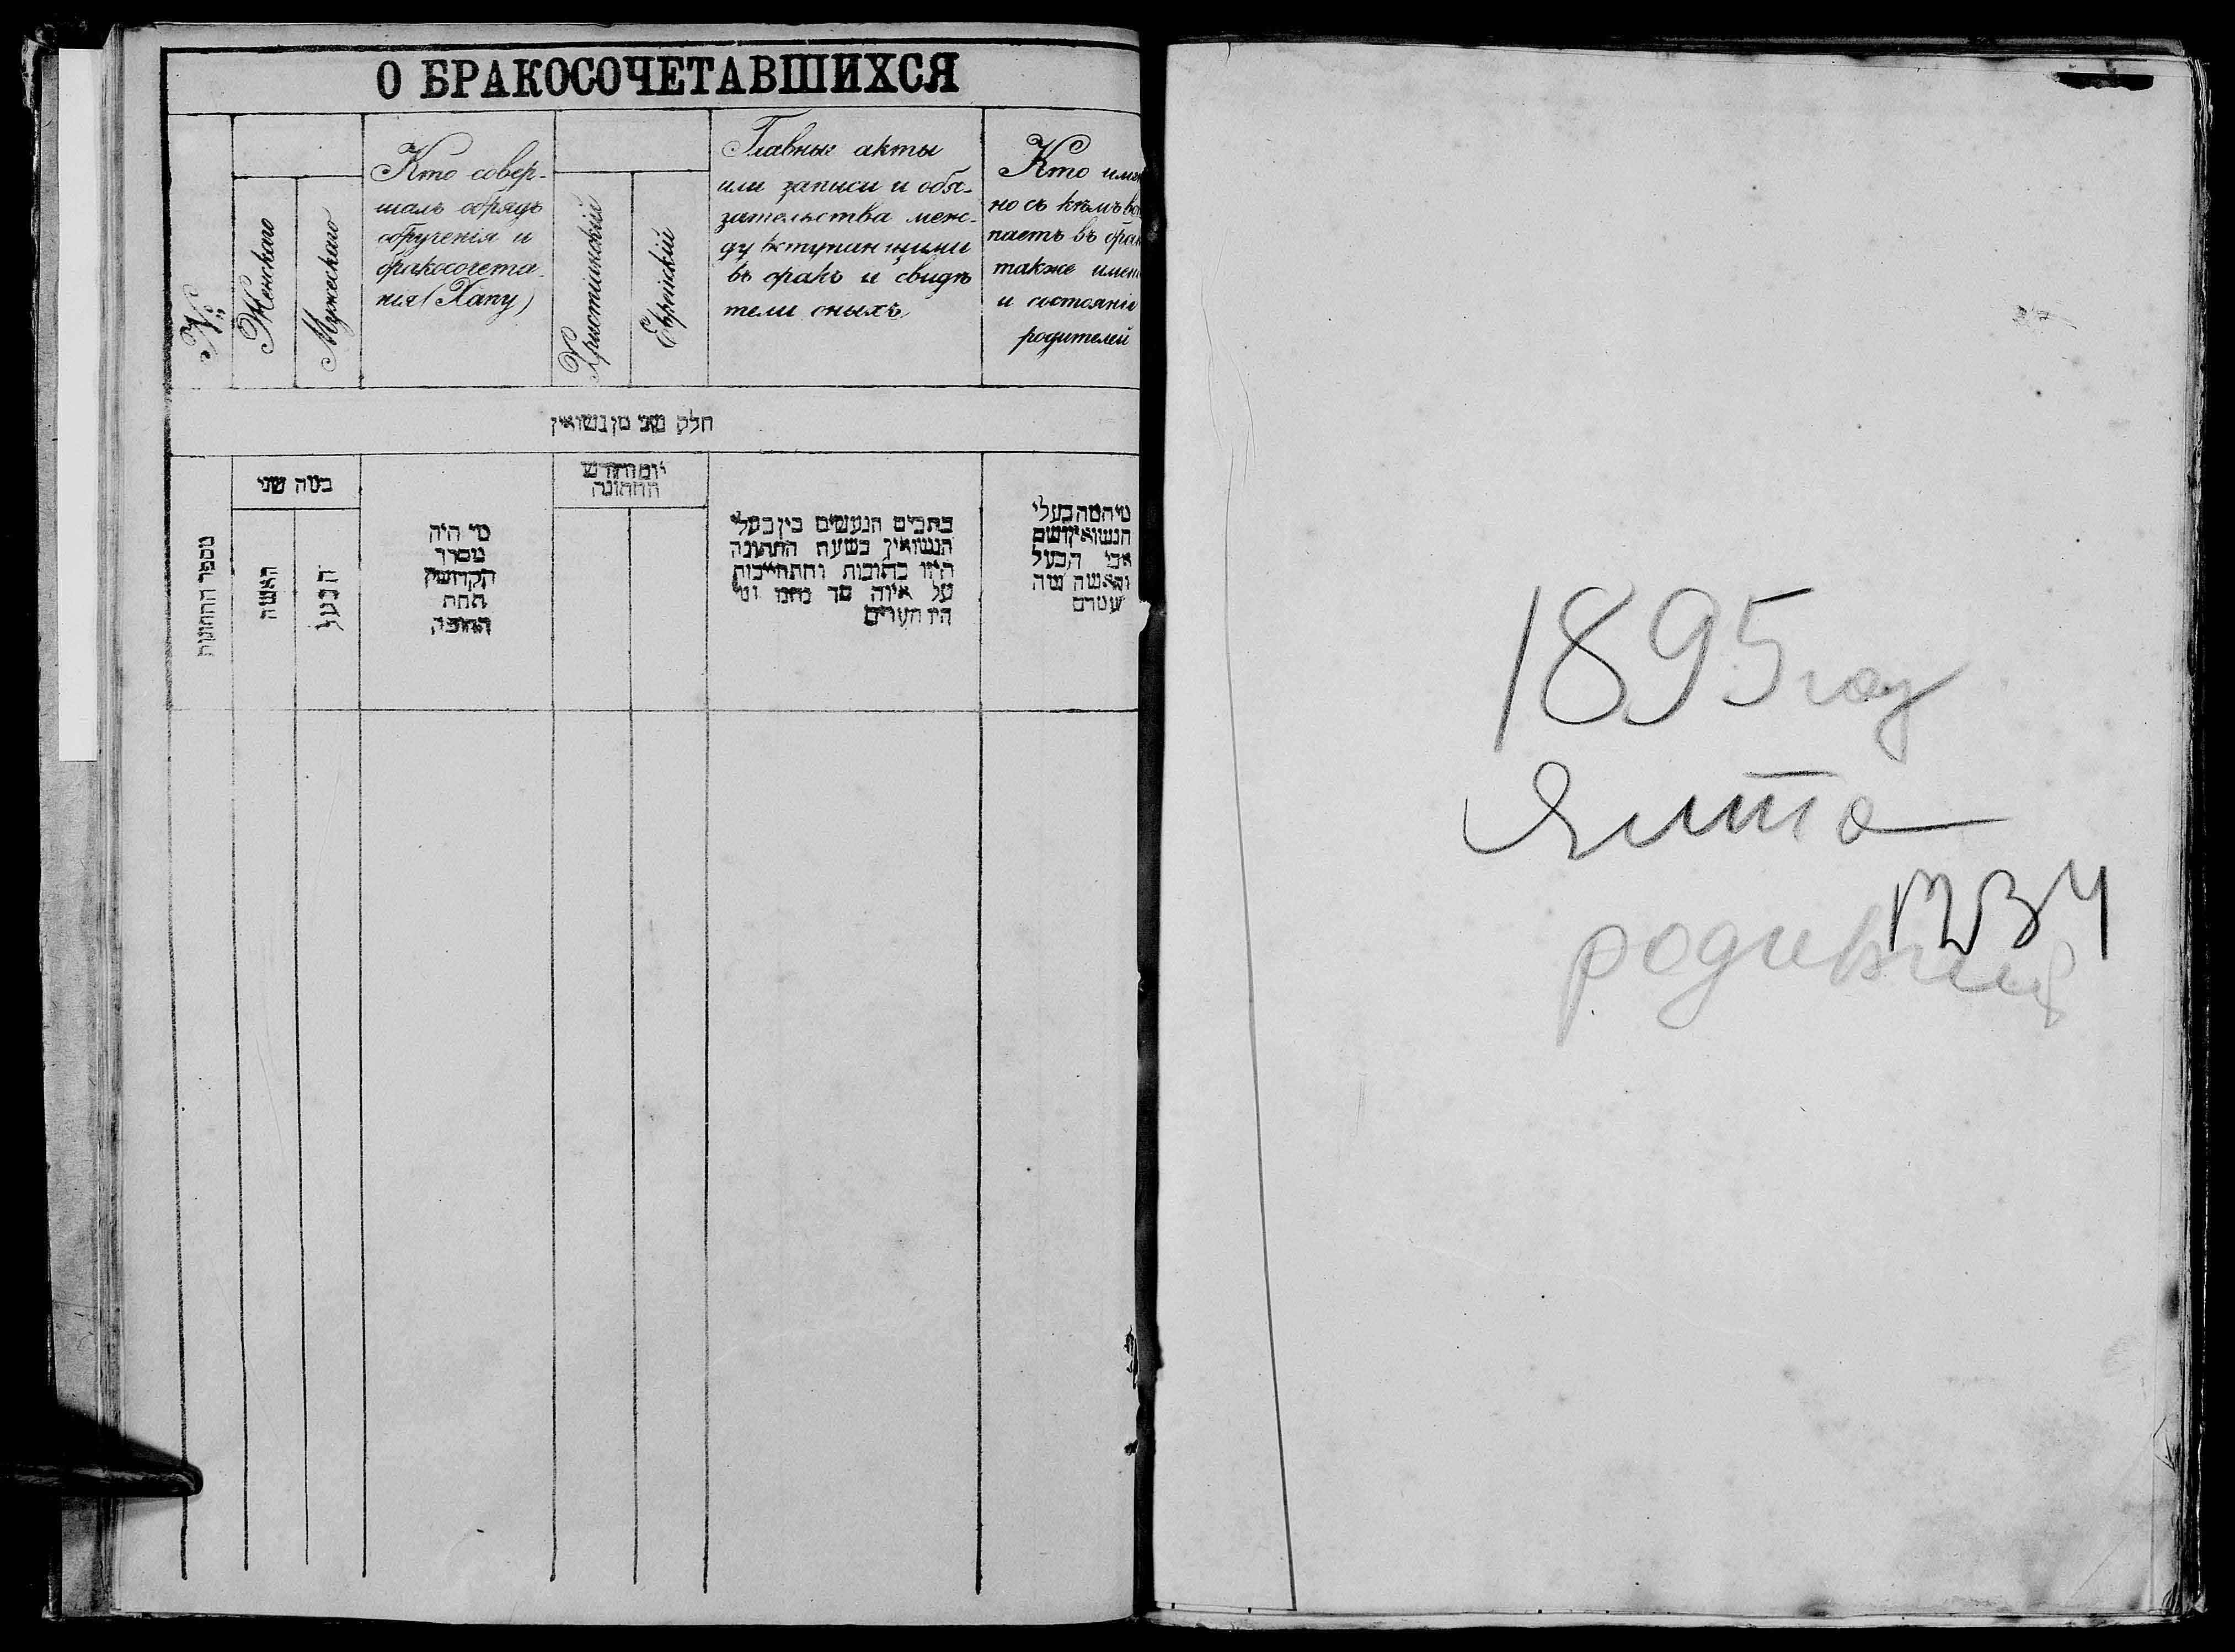 О БРАКОСОЧЕТАВШИХСЯ
№
Женскаго
Мужескаго
Кто совер-
шалъ обрядъ
обрученія и
бракосочета-
нія (Хапу)
Христіанскій
Еврейскій
Главные акты
или записи и обя-
зательства меж-
ду вступающими
въ бракъ и свидѣ
тели оныхъ
Кто имен
но съ кѣмъ вс
паетъ въ брак
также имен
и состояніе
родителей
חלק שני מן נשואין
מספר החתונות
כמה שני
האשה
הבעל
מי היה
מסדר
הקדושין
תחת
החופה
יום וחודש
החתונה
כתבים הנעשים בין בעלי
הנשואין בשעת החתונה
היו כתובות והתחייבות
על איזה סך נתנו ומי
היו העדים
מי המה בעלי
הנשואין ושם
אבי הבעל
והאשה
1895 году
Ялта
родивших